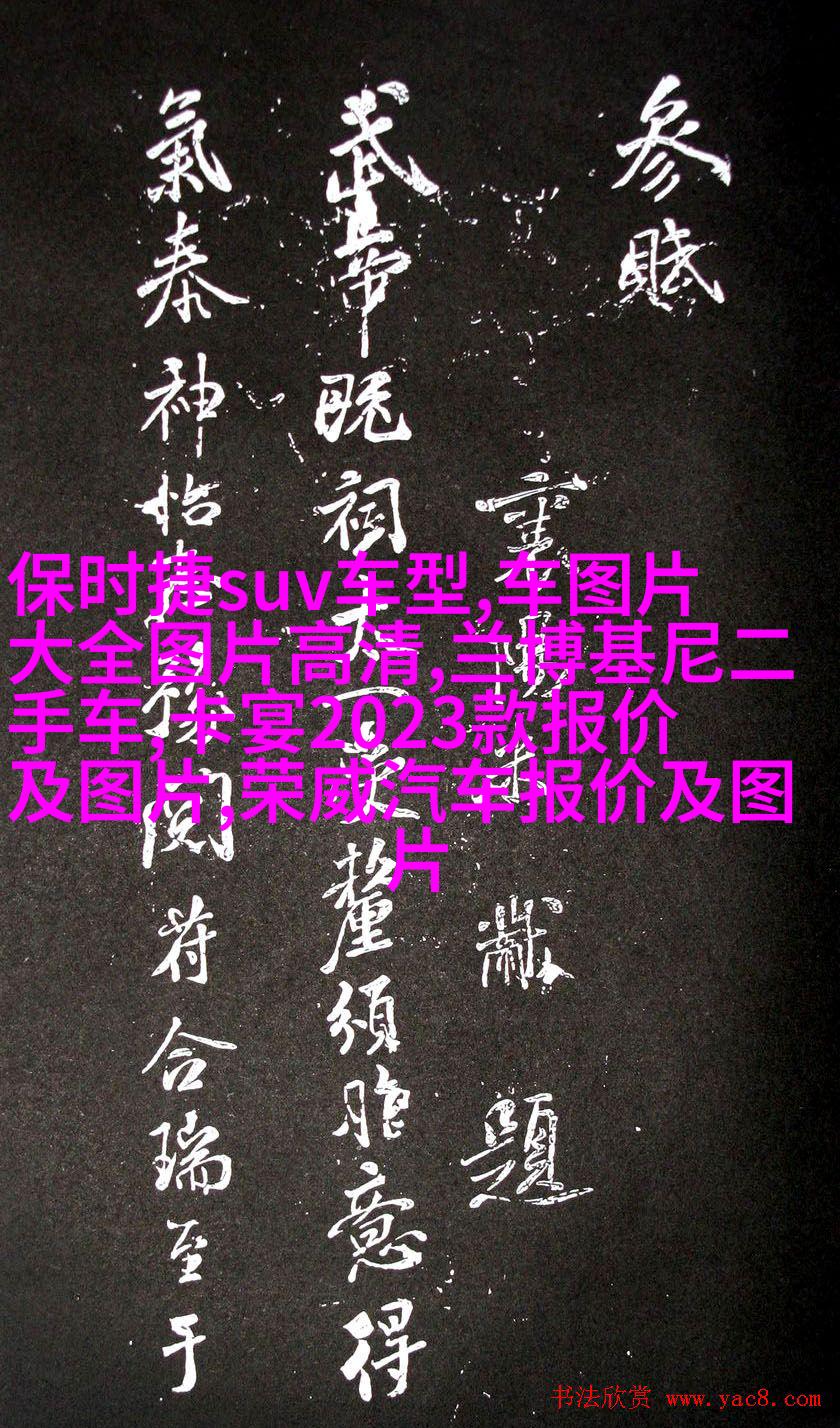 參賦
重陽朱黻題
武帝既祠太一受釐須臾意得
氣泰神怡
閱符合瑞至于
保时捷suv车型,车图片
大全图片高清,兰博基尼二
手车,卡宴2023款报价
及图片,荣威汽车报价及图
片
书法欣赏 www.yac8.com